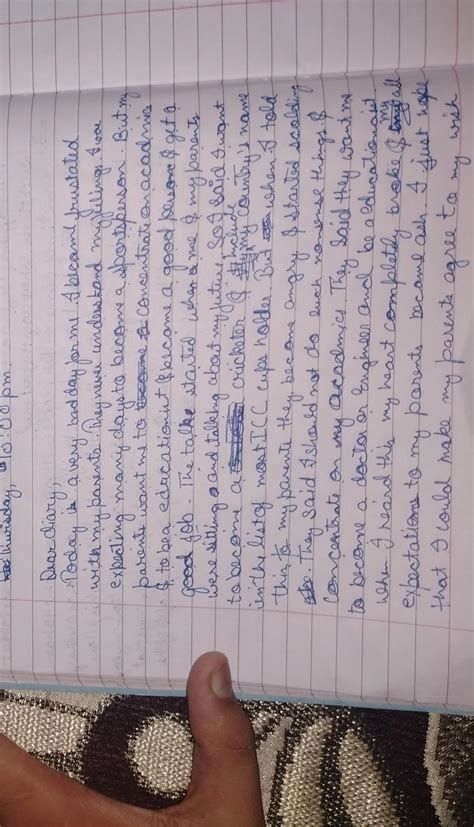 Thursday, 10:00 pm.
Dear diary,
Today is a very bad day for me. I became frustated
with my parents. They never understand my felling. I was
expecting many days to become a sportsperson. But my
parents want me to concentration acadmics
& to be a educationist & become a good person & get a
good job. The talk started when a me & my parents
were sitting and talking about my future. So I said I want
to become a cricketer & include my country's name
in the list of most ICC cups holder. But when I told
this to my parents they become angry & started scolding
They said I should not do such nonsense things &
concentrate on my acadmics. They said they want me
to become a doctor or Engineer and be a educationist
when I heard this my heart completely broke & my
expectations to my parents became ash. I just hope
that I could make my parents agree to my wish